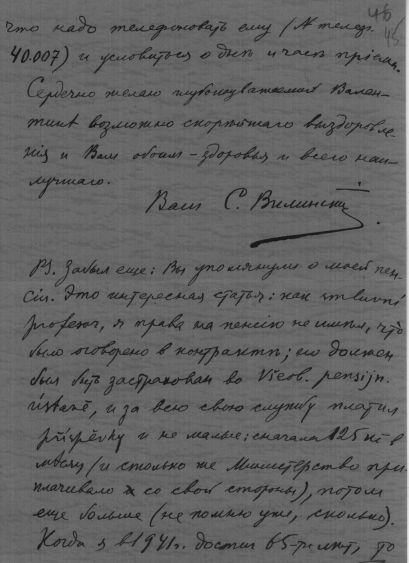 46
45
что надо телефоновать ему (№ телеф.
40.007) и условиться о дне и часе пріема.
Сердечно желаю глубокоуважаемой Вален-
тинѣ возможно скорѣйшаго выздоровле-
нія и Вам обоим – здоровья и всего наи-
лучшаго.
Ваш С. Вилинскій.
PS. Забыл еще: Вы упомянули о моей пен-
сіи. Это интересная статья: как smluvní
profesor, я права на пенсію не имѣл, что
было оговорено в контрактѣ; но должен
был быть застрахован во Všeob. pensijn.
ústavě, и за всю свою службу платил
příspěvky и не малые: сначала 125 kč в
мѣсяц (и столько же Министерство при-
плачивало со своей стороны), потом
еще больше (не помню уже, сколько).
Когда я в 1941 г. достиг 65-ти лѣт, то